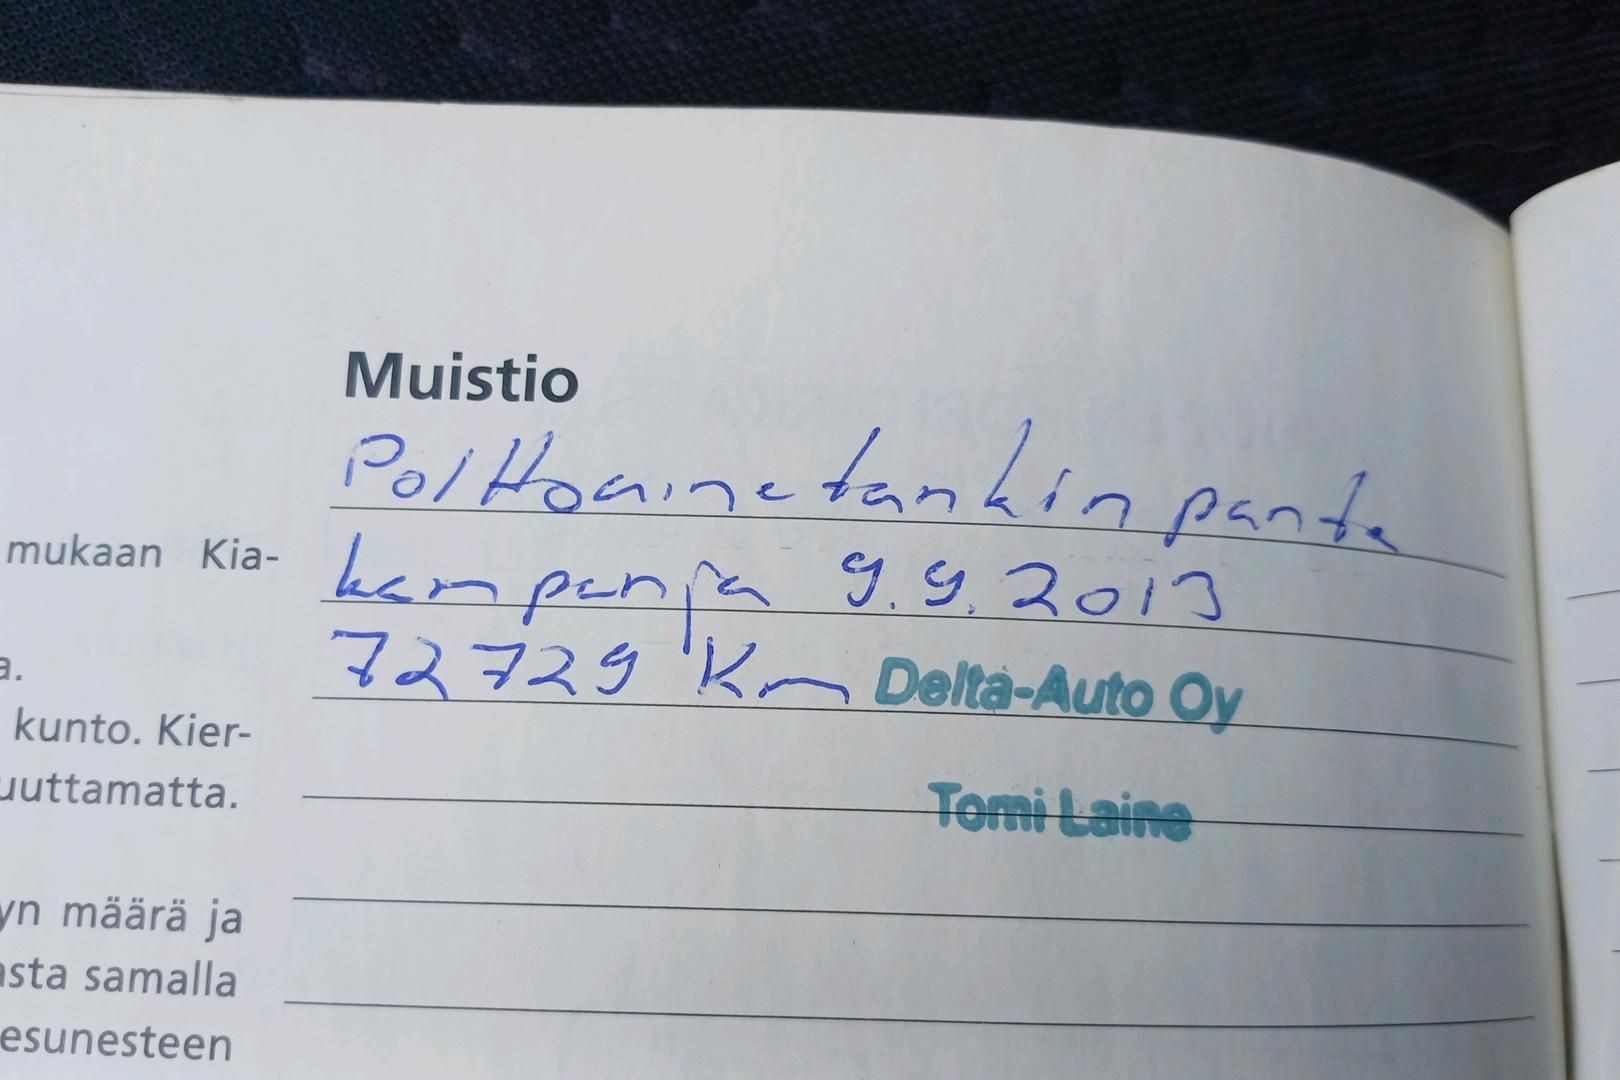 Muistio
Polttoainetankin panta
kampanja 9.9.2013
72729 Km Delta-Auto Oy
Tomi Laine
mukaan Kia-
a.
kunto. Kier-
uuttamatta.
yn määrä ja
asta samalla
esunesteen